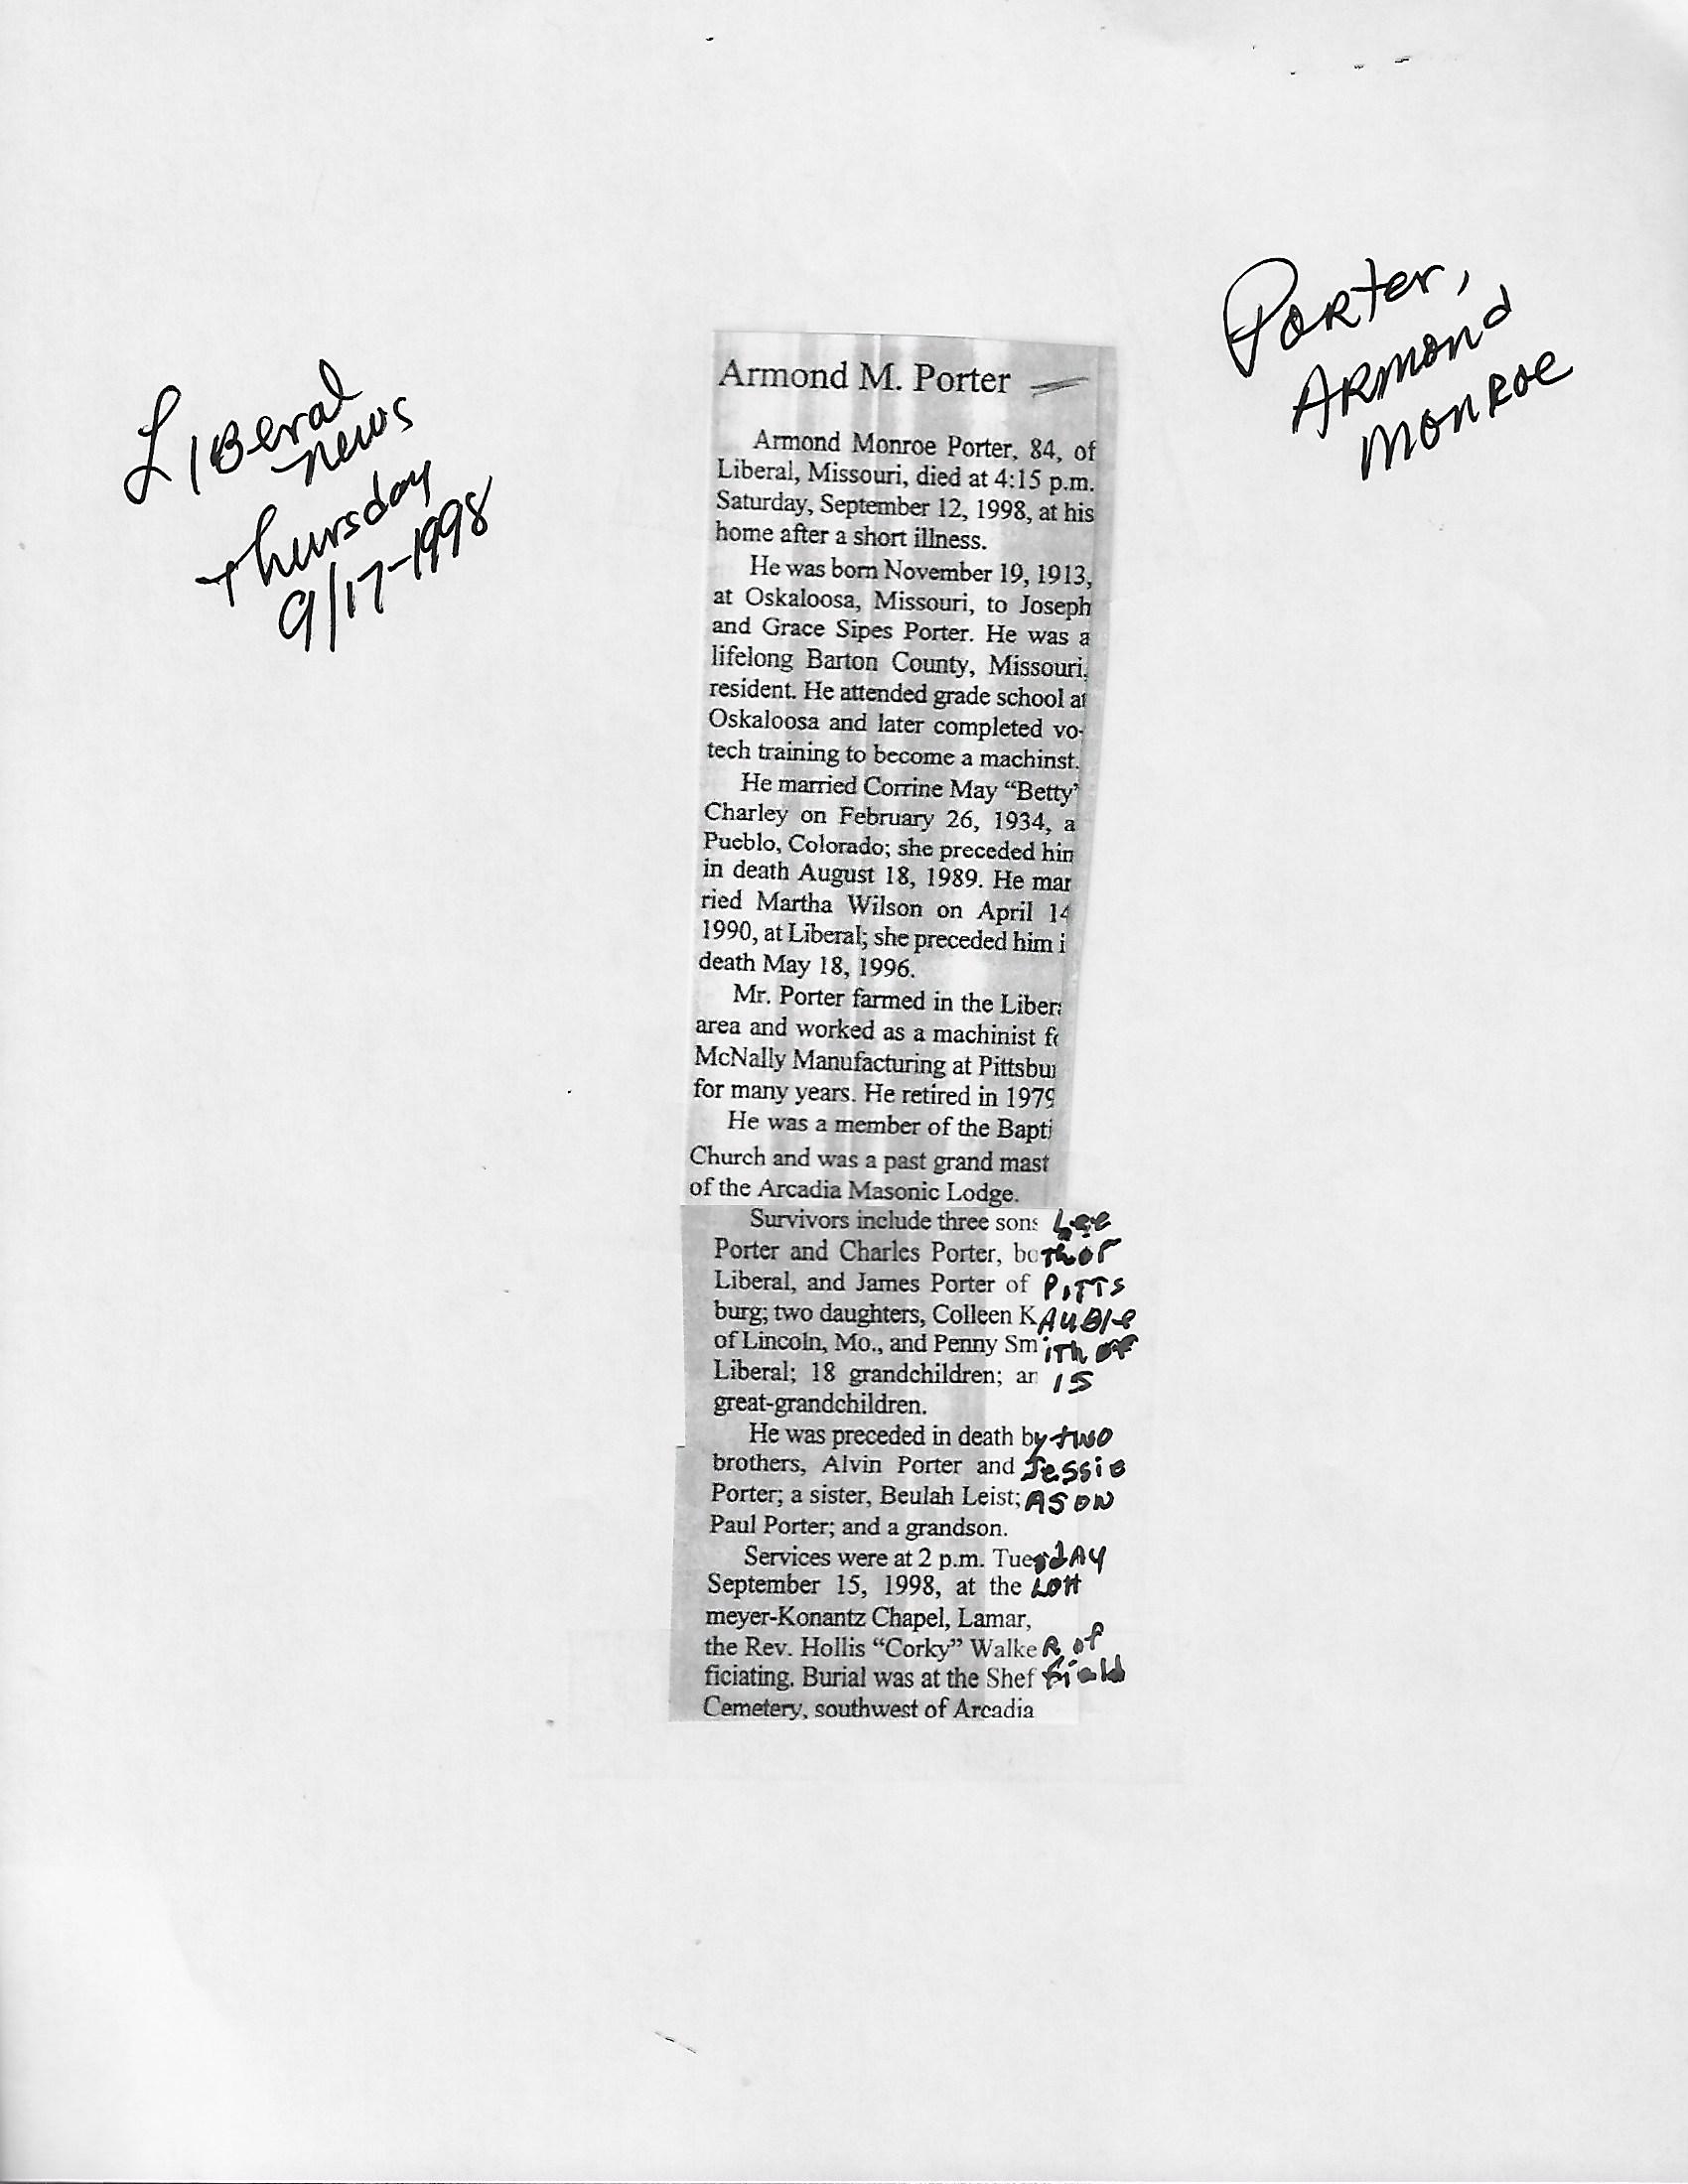 Liberal
News
Thursday
9/17-1998
Porter,
Armond
Monroe
Armond M. Porter
Armond Monroe Porter, 84, of
Liberal, Missouri, died at 4:15 p.m.
Saturday, September 12, 1998, at his
home after a short illness.
He was born November 19, 1913,
at Oskaloosa, Missouri, to Joseph
and Grace Sipes Porter. He was a
lifelong Barton County, Missouri,
resident. He attended grade school at
Oskaloosa and later completed vo-
tech training to become a machinst.
He married Corrine May "Betty"
Charley on February 26, 1934, a
Pueblo, Colorado; she preceded him
in death August 18, 1989. He mar
ried Martha Wilson on April 14
1990, at Liberal; she preceded him i
death May 18, 1996.
Mr. Porter farmed in the Libera
area and worked as a machinist fo
McNally Manufacturing at Pittsbu
for many years. He retired in 1979
He was a member of the Bapti
Church and was a past grand mast
of the Arcadia Masonic Lodge.
Survivors include three sons Lee
Porter and Charles Porter, both of
Liberal, and James Porter of Pitts
burg; two daughters, Colleen Kauble
of Lincoln, Mo., and Penny Smith of
Liberal; 18 grandchildren; an 15
great-grandchildren.
He was preceded in death by two
brothers, Alvin Porter and Jessie
Porter; a sister, Beulah Leist; A son
Paul Porter; and a grandson.
Services were at 2 p.m. Tuesday
September 15, 1998, at the Lott
meyer-Konantz Chapel, Lamar,
the Rev. Hollis "Corky" Walker of
ficiating. Burial was at the Sheffield
Cemetery, southwest of Arcadia